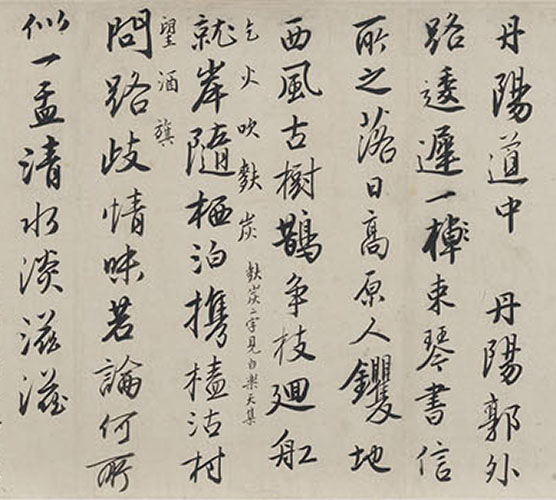 丹陽道中 丹陽郭外
路逶遲一棹束琴書信
所之落日高原人钁地
西風古樹鵲争枝廻舡
乞火吹麩炭 麩炭二字見白樂天集
就岸隨栖泊携榼沽村
望酒旗
問路歧情味若論何所
似一盂清水淡滋滋